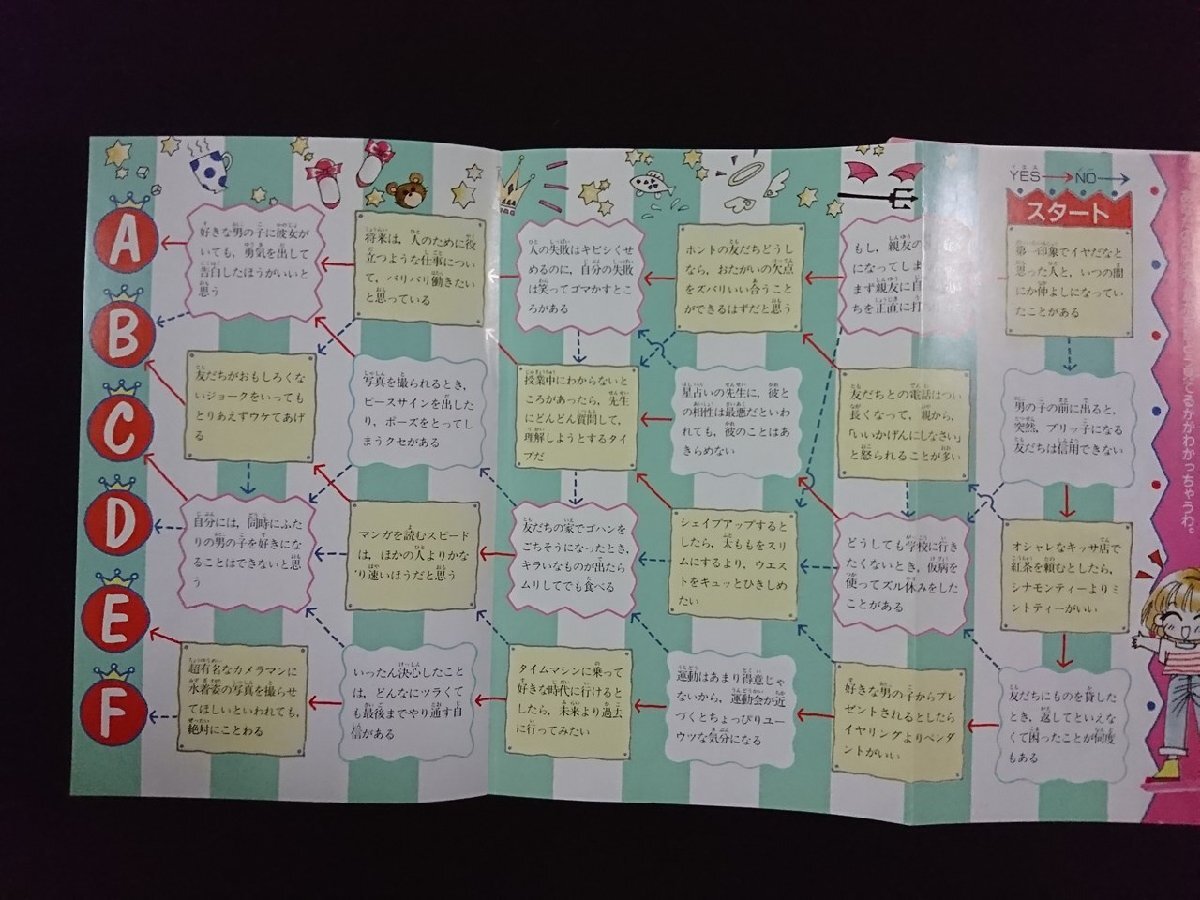 YES→NO→
スタート
第一印象でイヤだなと
思った人と、いつの間
にか仲よしになってい
たことがある
男の子の前に出ると、
突然、ブリッ子になる
友だちは信用できない
オシャレなキッサ店で
紅茶を頼むとしたら、
シナモンティーよりミ
ントティーがいい
友だちにものを貸した
とき、返してといえな
くて困ったことが何度
もある
もし、親友の
になってしま
まず親友に自
ちを正直に打
友だちとの電話はつい
長くなって、親から、
「いいかげんにしなさい」
と怒られることが多い
どうしても学校に行き
たくないとき、仮病を
使ってズル休みをした
ことがある
好きな男の子からプレ
ゼントされるとしたら
イヤリングよりペンダ
ントがいい
ホントの友だちどうし
なら、おたがいの欠点
をズバリいい合うこと
ができるはずだと思う
星占いの先生に、彼と
の相性は最悪だといわ
れても、彼のことはあ
きらめない
シェイプアップすると
したら、太ももをスリ
ムにするより、ウエス
トをキュッとひきしめ
たい
運動はあまり得意じゃ
ないから、運動会が近
づくとちょっぴりユー
ウツな気分になる
人の失敗はキビシくせ
めるのに、自分の失敗
は笑ってゴマかすとこ
ろがある
授業中にわからないと
ころがあったら、先生
にどんどん質問して、
理解しようとするタイ
プだ
友だちの家でゴハンを
ごちそうになったとき、
キライなものが出たら
ムリしてでも食べる
タイムマシンに乗って
好きな時代に行けると
したら、未来より過去
に行ってみたい
将来は、人のために役
立つような仕事につい
て、バリバリ働きたい
と思っている
写真を撮られるとき、
ピースサインを出した
り、ポーズをとってし
まうクセがある
マンガを読むスピード
は、ほかの人よりかな
り速いほうだと思う
いったん決心したこと
は、どんなにツラくて
も最後までやり通す自
信がある
好きな男の子に彼女が
いても、勇気を出して
告白したほうがいいと
思う
友だちがおもしろくな
いジョークをいっても
とりあえずウケてあげ
る
自分には、同時にふた
りの男の子を好きにな
ることはできないと思
う
超有名なカメラマンに
水着姿の写真を撮らせ
てほしいといわれても、
絶対にことわる
A
B
C
D
E
F
るかがわかっちゃうわ。